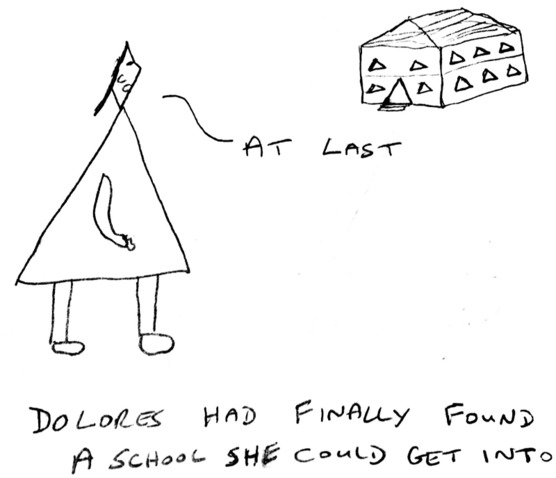 AT LAST
DOLORES HAD FINALLY FOUND
A SCHOOL SHE COULD GET INTO